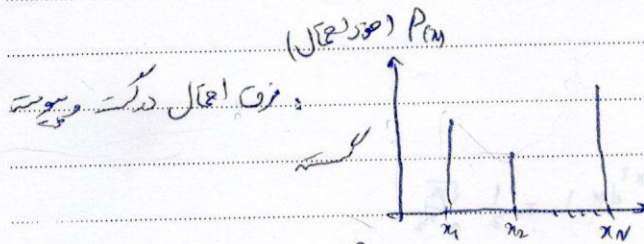 (نمودار احتمال) P(x)
: فرق احتمال در گسسته و پیوسته
گسسته
x₁ x₂ ..... x_N